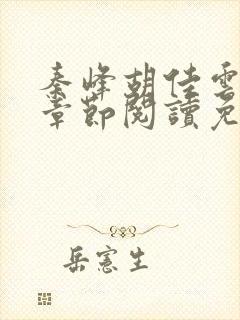 秦峰胡佳雲
章節閱讀免
岳憲生